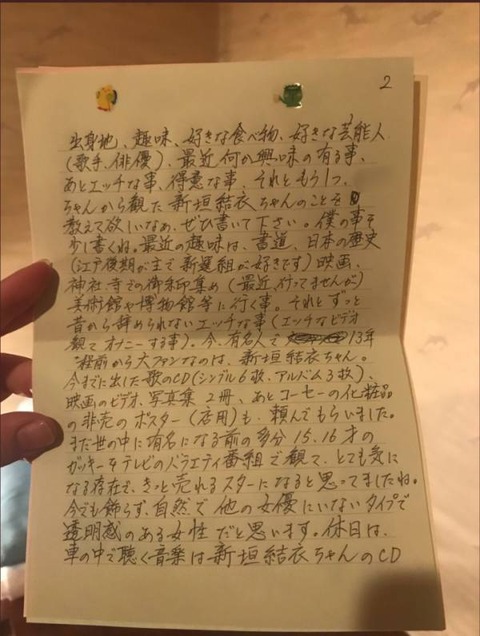 2
出身地、趣味、好きな食べ物、好きな芸能人
(歌手、俳優)、最近何か興味の有る事、
あとエッチな事、得意な事、それともう1つ、
ちゃんから観た新垣結衣ちゃんのことを
教えて欲しいなあ、ぜひ書いて下さい。僕の事を
少し書くね。最近の趣味は、書道、日本の歴史
(江戸後期が主で新選組が好きです)映画、
神社寺その御朱印集め(最近、行ってませんが)
美術館や博物館等に行く事。それとずっと
昔から辞められないエッチな事(エッチなビデオ
観てオナニーする事)。今、有名人で 13年
程前から大ファンなのは、新垣結衣ちゃん。
今までに出した歌のCD(シングル6枚、アルバム3枚)、
映画のビデオ、写真集2冊、あとコーセーの化粧品
の非売のポスター(店用)も、頼んでもらいました。
まだ世の中に有名になる前の多分15、16才の
ガッキーをテレビのバラエティ番組で観て、とても気に
なる存在で、きっと売れるスターになると思ってましたね。
今でも飾らず、自然で他の女優にいないタイプで
透明感のある女性だと思います。休日は、
車の中で聴く音楽は新垣結衣ちゃんのCD